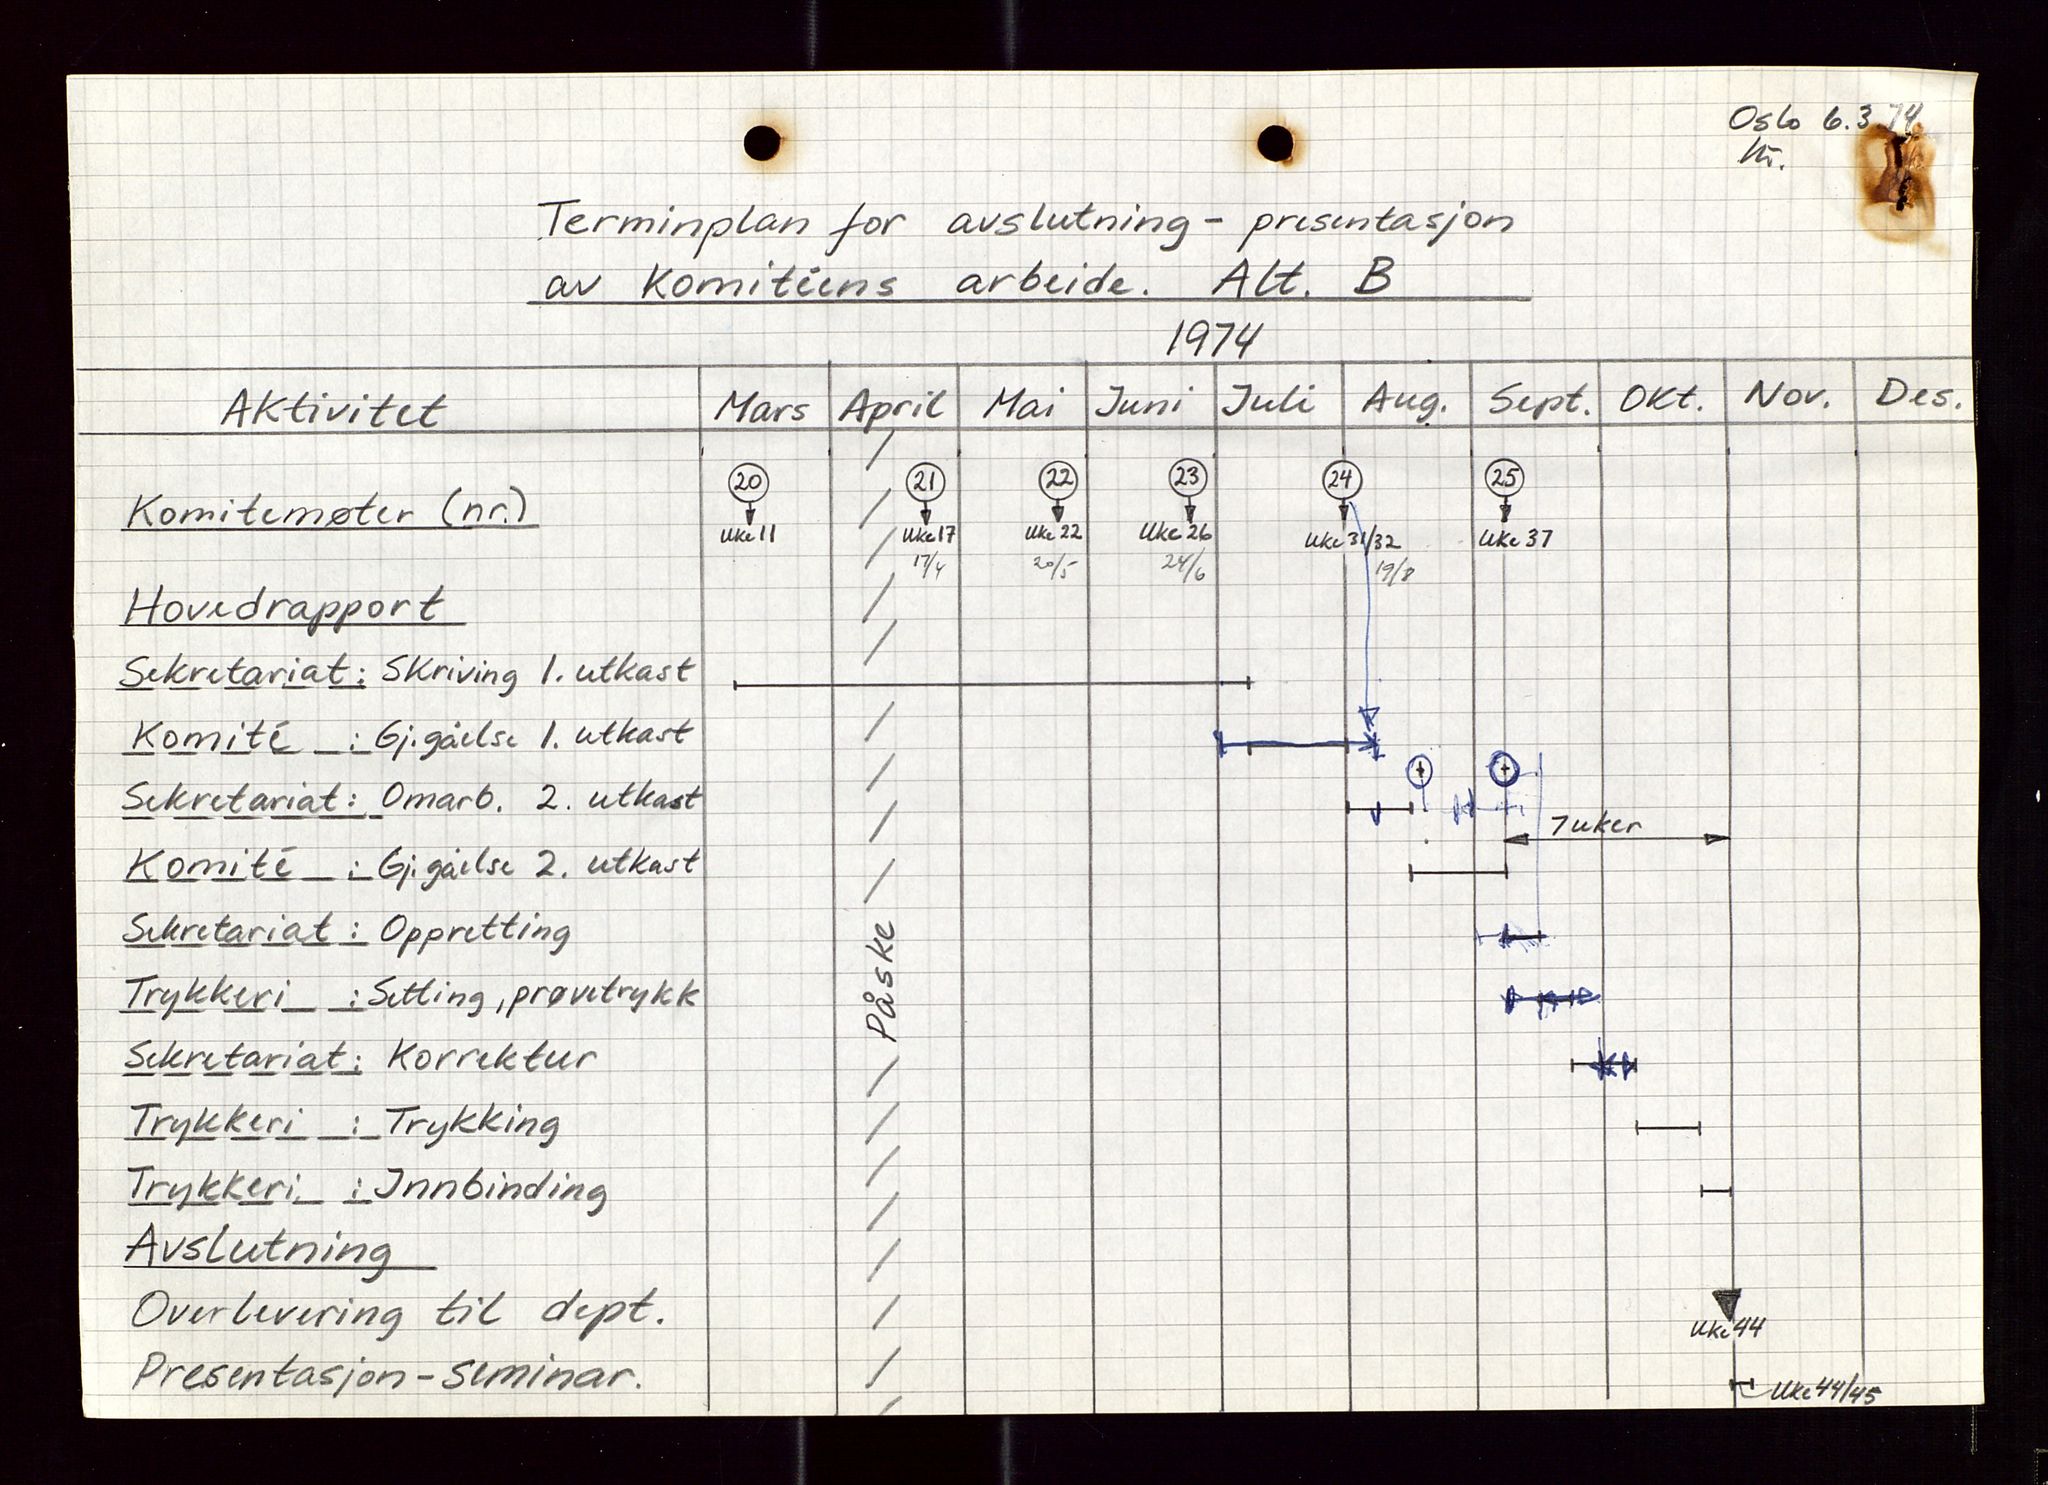 Oslo 6.3.74.
Terminplan for avslutning - presentasjon
av Komitéens arbeide. Alt. B
1974
Aktivitet Mars April Mai Juni Juli Aug. Sept. Okt. Nov. Des.
20 21 22 23 24 25
Komitemøter (nr.) Uke 11 Uke 17 Uke 22 Uke 26 Uke 31/32 Uke 37
17/4 20/5 24/6 19/8
Hovedrapport
Sekretariat: Skriving 1. utkast
Komité : Gj.gåelse 1. utkast
Sekretariat: Omarb. 2. utkast
7 uker
Komité : Gj.gåelse 2. utkast
Sekretariat: Oppretting
Påske
Trykkeri : Setting, prøvetrykk
Sekretariat: Korrektur
Trykkeri : Trykking
Trykkeri : Innbinding
Avslutning
Overlevering til dept.
Uke 44
Presentasjon - seminar.
Uke 44/45